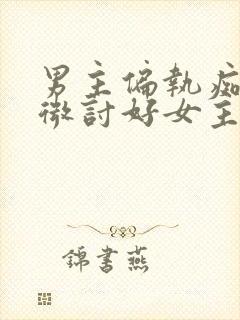 男主偏執痴
微討好女主
錦書燕